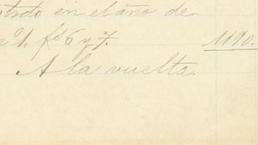 trado en el año de
nº 1, fs 6 y 7. 1190.
A la vuelta